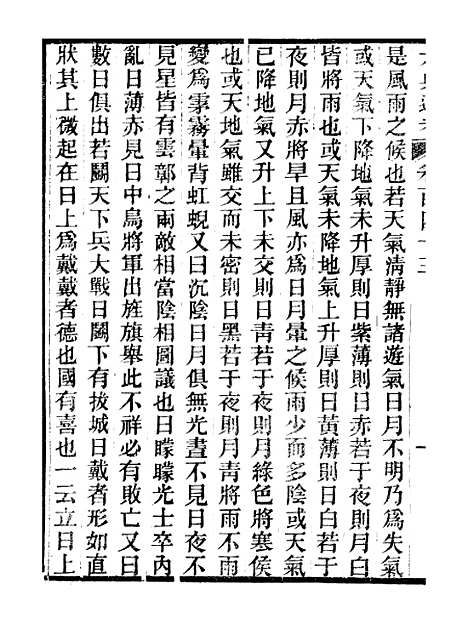 是風雨之候也若天氣清靜無諸遊氣日月不明乃爲失氣
或天氣下降地氣未升厚則日紫薄則日赤若于夜則月白
皆將雨也或天氣未降地氣上升厚則日黃薄則日白若于
夜則月赤將旱且風亦爲日月暈之候雨少而多陰或天氣
已降地氣又升上下未交則日靑若于夜則月綠色將寒侯
也或天地氣雖交而未密則日黑若于夜則月靑將雨不雨
變爲雺霧暈背虹蜺又曰沉陰日月俱無光晝不見日夜不
見星皆有雲鄣之兩敵相當陰相圖議也日曚曚光士卒內
亂日薄赤見日中烏將軍出旌旗舉此不祥必有敗亡又曰
數日俱出若鬭天下兵大戰日鬭下有拔城日戴者形如直
狀其上微起在日上爲戴戴者德也國有喜也一云立日上